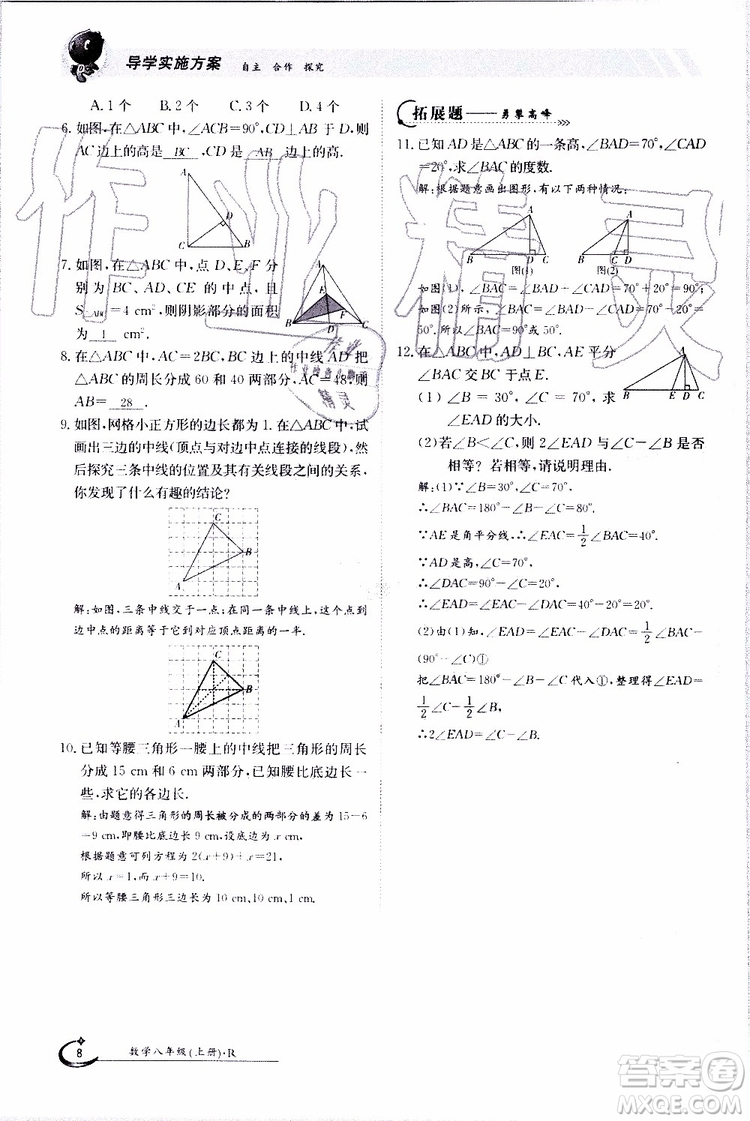 导学实施方案 自主 合作 探究
A.1个 B.2个 C.3个 D.4个
6.如图,在△ABC中,∠ACB=90°,CD⊥AB于D,则
AC边上的高是 BC ,CD是 AB 边上的高.
A
D
C B
7.如图,在△ABC中,点D、E、F分
别为BC、AD、CE的中点,且
S△ABC=4 cm²,则阴影部分的面积
为 1 cm².
A
E
F
B D C
8.在△ABC中,AC=2BC,BC边上的中线AD把
△ABC的周长分成60和40两部分,AC=48,则
AB= 28 .
9.如图,网格小正方形的边长都为1.在△ABC中,试
画出三边的中线(顶点与对边中点连接的线段),然
后探究三条中线的位置及其有关线段之间的关系,
你发现了什么有趣的结论?
C
B
A
解:如图,三条中线交于一点;在同一条中线中,这个点到
边中点的距离等于它到对应顶点距离的一半.
C
B
A
10.已知等腰三角形一腰上的中线把三角形的周长
分成15 cm和6 cm两部分,若腰比底边长长一
些,求它的各边长.
解:由题意得三角形的周长被分成的两部分的差为15-6
=9 cm,即腰比底边长9 cm,设底边长为x cm,
根据题意可列方程为2(x+9)+x=21,
所以x=1,x+9=10.
所以等腰三角形三边长为10 cm,10 cm,1 cm.
拓展题——勇攀高峰
11.已知AD是△ABC的一条高,∠BAD=70°,∠CAD
=20°,求∠BAC的度数.
解:根据题意画出图形,有以下两种情况:
A A
B D C B C D
图(1) 图(2)
如图(1)所示,∠BAC=70°+20°=90°;
如图(2)所示,∠BAC=70°-20°=
50°.所以∠BAC=90°或50°.
12.在△ABC中,AD是高,AE平分
∠BAC交于点E.
(1)∠B=30°,∠C=70°,求
∠EAD的大小.
(2)若∠B<∠C,则2∠EAD与∠C-∠B是否
相等?若相等,请说明理由.
解:(1)∵∠B=30°,∠C=70°,
∴∠BAC=180°-∠B-∠C=80°.
∵AE是角平分线,∴∠EAC=1/2∠BAC=40°.
∵AD是高,∠C=70°,
∴∠DAC=90°-∠C=20°.
∴∠EAD=∠EAC-∠DAC=40°-20°=20°.
(2)由(1)知,∠EAD=∠EAC-∠DAC=1/2∠BAC-
(90°-∠C)①
把∠BAC=180°-∠B-∠C代入①,整理得∠EAD=
1/2∠C-1/2∠B,
∴2∠EAD=∠C-∠B.
8 数学八年级(上册)·R
作业精灵
答案圈
MXQE.COM